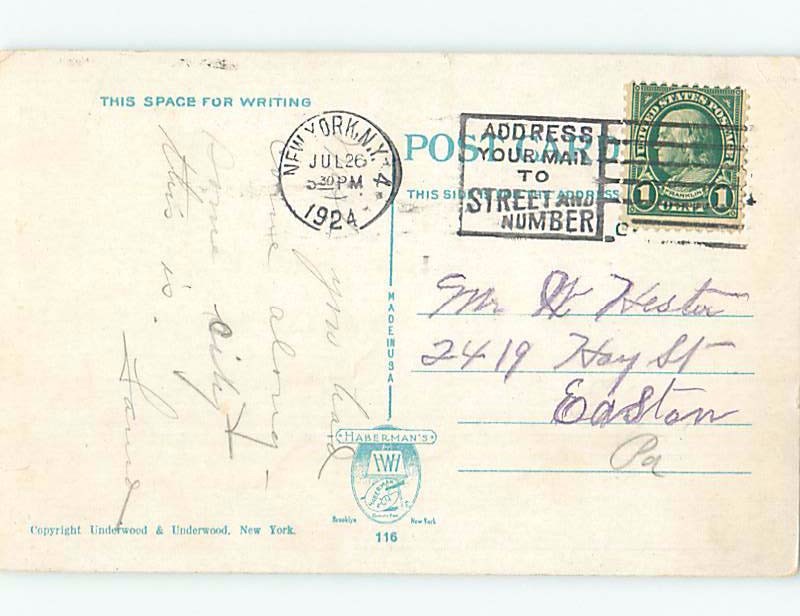 THIS SPACE FOR WRITING
NEW YORK, N.Y. 4
JUL 26
5 30 PM
1924
ADDRESS
YOUR MAIL
TO
STREET AND
NUMBER
POST CARD
THIS SIDE ADDRESS
UNITED STATES POSTAGE
FRANKLIN
1 CENT 1
you had
come along
some city
this is.
Mr W Hester
2419 Hay St
Easton
Pa
MADE IN USA
HABERMAN'S
Brooklyn New York
116
Copyright Underwood & Underwood, New York.